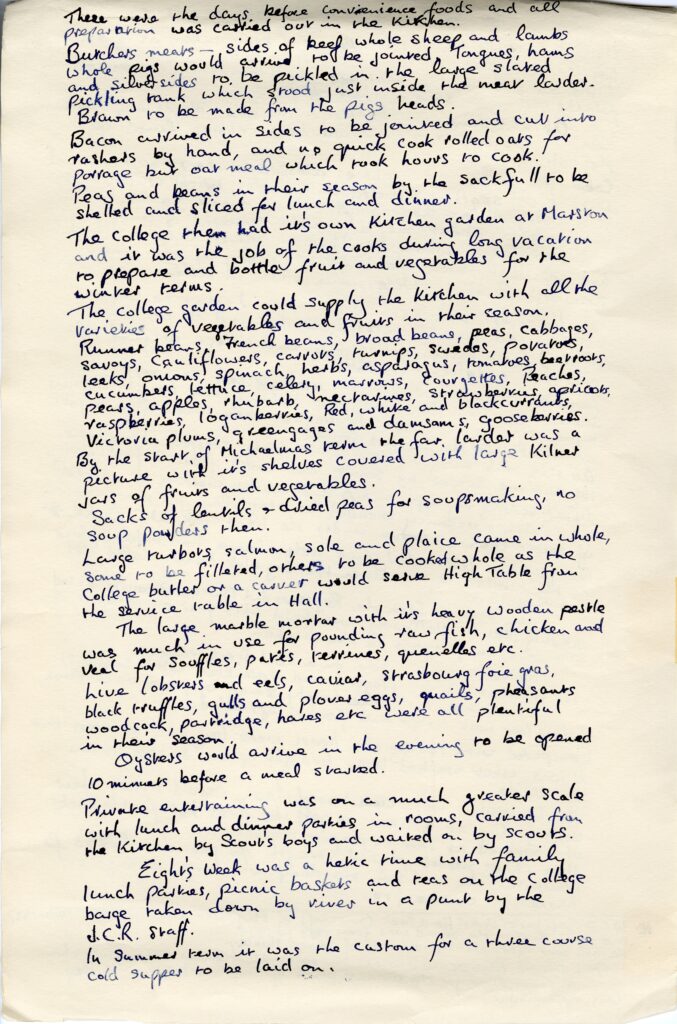 There were the days before convenience foods and all
preparation was carried out in the Kitchen.
Butchers meats – sides of beef whole sheep and lambs
whole pigs would arrive to be jointed. Tongues, hams
and silversides to be pickled in the large slated
pickling tank which stood just inside the meat larder.
Brawn to be made from the pigs heads.
Bacon arrived in sides to be jointed and cut into
rashers by hand, and no quick cook rolled oats for
porrage but oat meal which took hours to cook.
Peas and beans in their season by the sackfull to be
shelled and sliced for lunch and dinner.
The college then had it's own Kitchen garden at Marston
and it was the job of the cooks during long vacation
to prepare and bottle fruit and vegetables for the
winter terms.
The college garden could supply the Kitchen with all the
varieties of vegetables and fruits in their season.
Runner beans, French beans, broad beans, peas, cabbages,
savoys, Cauliflowers, carrots, turnips, swedes, potatoes,
leeks, onions, spinach, herbs, asparagus, tomatoes, beetroots,
cucumbers, lettuce, celery, marrows, courgettes, Peaches,
pears, apples, rhubarb, nectarines, strawberries, apricots,
raspberries, loganberries, Red, white and blackcurrants,
Victoria plums, greengages and damsons, gooseberries.
By the start of Michaelmas term the far larder was a
picture with it's shelves covered with large Kilner
jars of fruits and vegetables.
Sacks of lentils & dried peas for soupsmaking, no
soup powders then.
Large turbots, salmon, sole and plaice came in whole,
some to be filleted, others to be cooked whole as the
College butler or a carver would serve High Table from
the service table in Hall.
The large marble mortar with it's heavy wooden pestle
was much in use for pounding raw fish, chicken and
veal for Souffles, patés, terrines, quenelles etc.
Live lobsters and eels, caviar, strasbourg foie gras,
black truffles, gulls and plover eggs, quails, pheasants
woodcock, partridge, hares etc were all plentiful
in their season.
Oysters would arrive in the evening to be opened
10 minuets before a meal started.
Private entertaining was on a much greater scale
with lunch and dinner parties in rooms, carried from
the Kitchen by Scouts boys and waited on by scouts.
Eight's Week was a hetic time with family
lunch parties, picnic baskets and teas on the College
barge taken down by river in a punt by the
J.C.R. Staff.
In Summer term it was the custom for a three course
cold supper to be laid on.